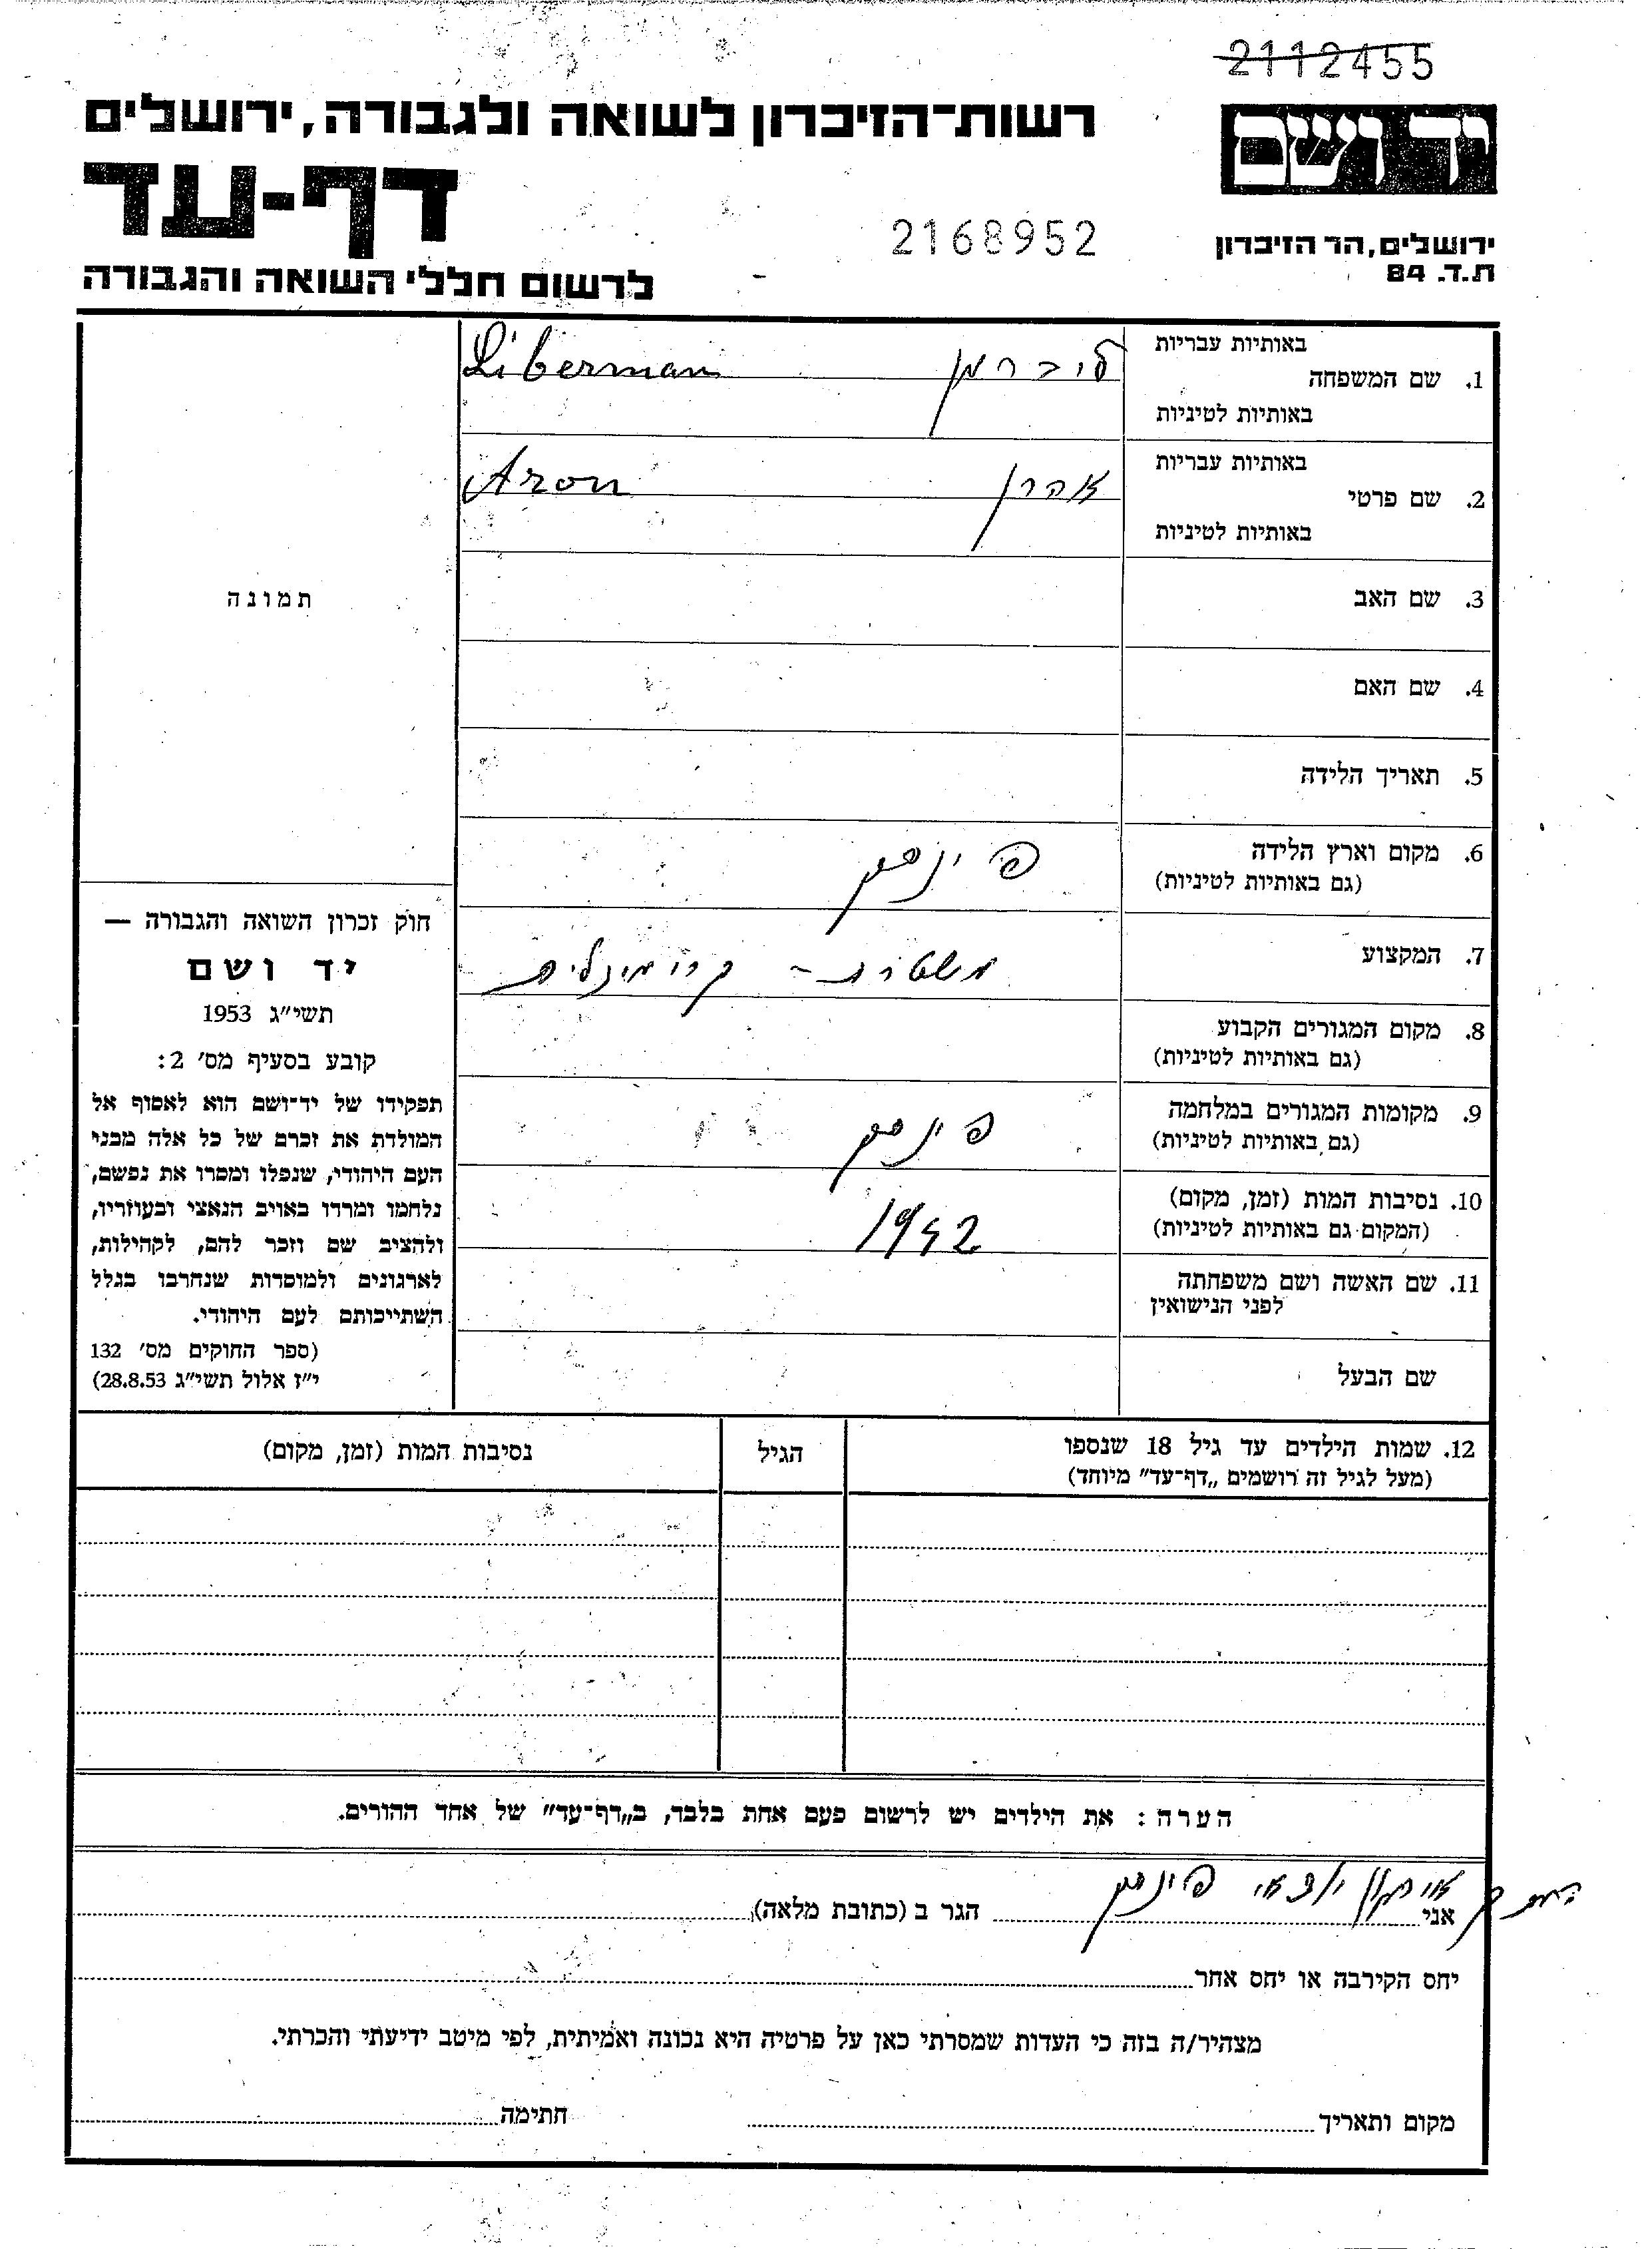 2112455
רשות־הזיכרון לשואה ולגבורה, ירושלים
יד ושם
דף-עד
2168952
ירושלים, הר הזיכרון
ת.ד. 84
לרשום חללי השואה והגבורה
באותיות עבריות
1. שם המשפחה
ליברמן Liberman
באותיות לטיניות
באותיות עבריות
2. שם פרטי
אהרן Aron
באותיות לטיניות
תמונה
3. שם האב
4. שם האם
5. תאריך הלידה
6. מקום וארץ הלידה
(גם באותיות לטיניות)
פינסק
7. המקצוע
משטרה - קרימינלית
8. מקום המגורים הקבוע
(גם באותיות לטיניות)
9. מקומות המגורים במלחמה
(גם באותיות לטיניות)
פינסק
10. נסיבות המות (זמן, מקום)
(המקום גם באותיות לטיניות)
1942
11. שם האשה ושם משפחתה
לפני הנישואין
שם הבעל
חוק זכרון השואה והגבורה —
יד ושם
תשי״ג 1953
קובע בסעיף מס׳ 2:
תפקידו של יד־ושם הוא לאסוף אל
המולדת את זכרם של כל אלה מבני
העם היהודי, שנפלו ומסרו את נפשם,
נלחמו ומרדו באויב הנאצי ובעוזריו,
ולהציב שם וזכר להם, לקהילות,
לארגונים ולמוסדות שנחרבו בגלל
השתייכותם לעם היהודי.
(ספר החוקים מס׳ 132
י״ז אלול תשי״ג 28.8.53)
12. שמות הילדים עד גיל 18 שנספו
(מעל לגיל זה רושמים „דף־עד״ מיוחד)
הגיל
נסיבות המות (זמן, מקום)
הערה: את הילדים יש לרשום פעם אחת בלבד, ב„דף־עד״ של אחד ההורים.
ארגון יוצאי פינסק
אני הגר ב (כתובת מלאה)
יחס הקירבה או יחס אחר
מצהיר/ה בזה כי העדות שמסרתי כאן על פרטיה היא נכונה ואמיתית, לפי מיטב ידיעתי והכרתי.
מקום ותאריך חתימה